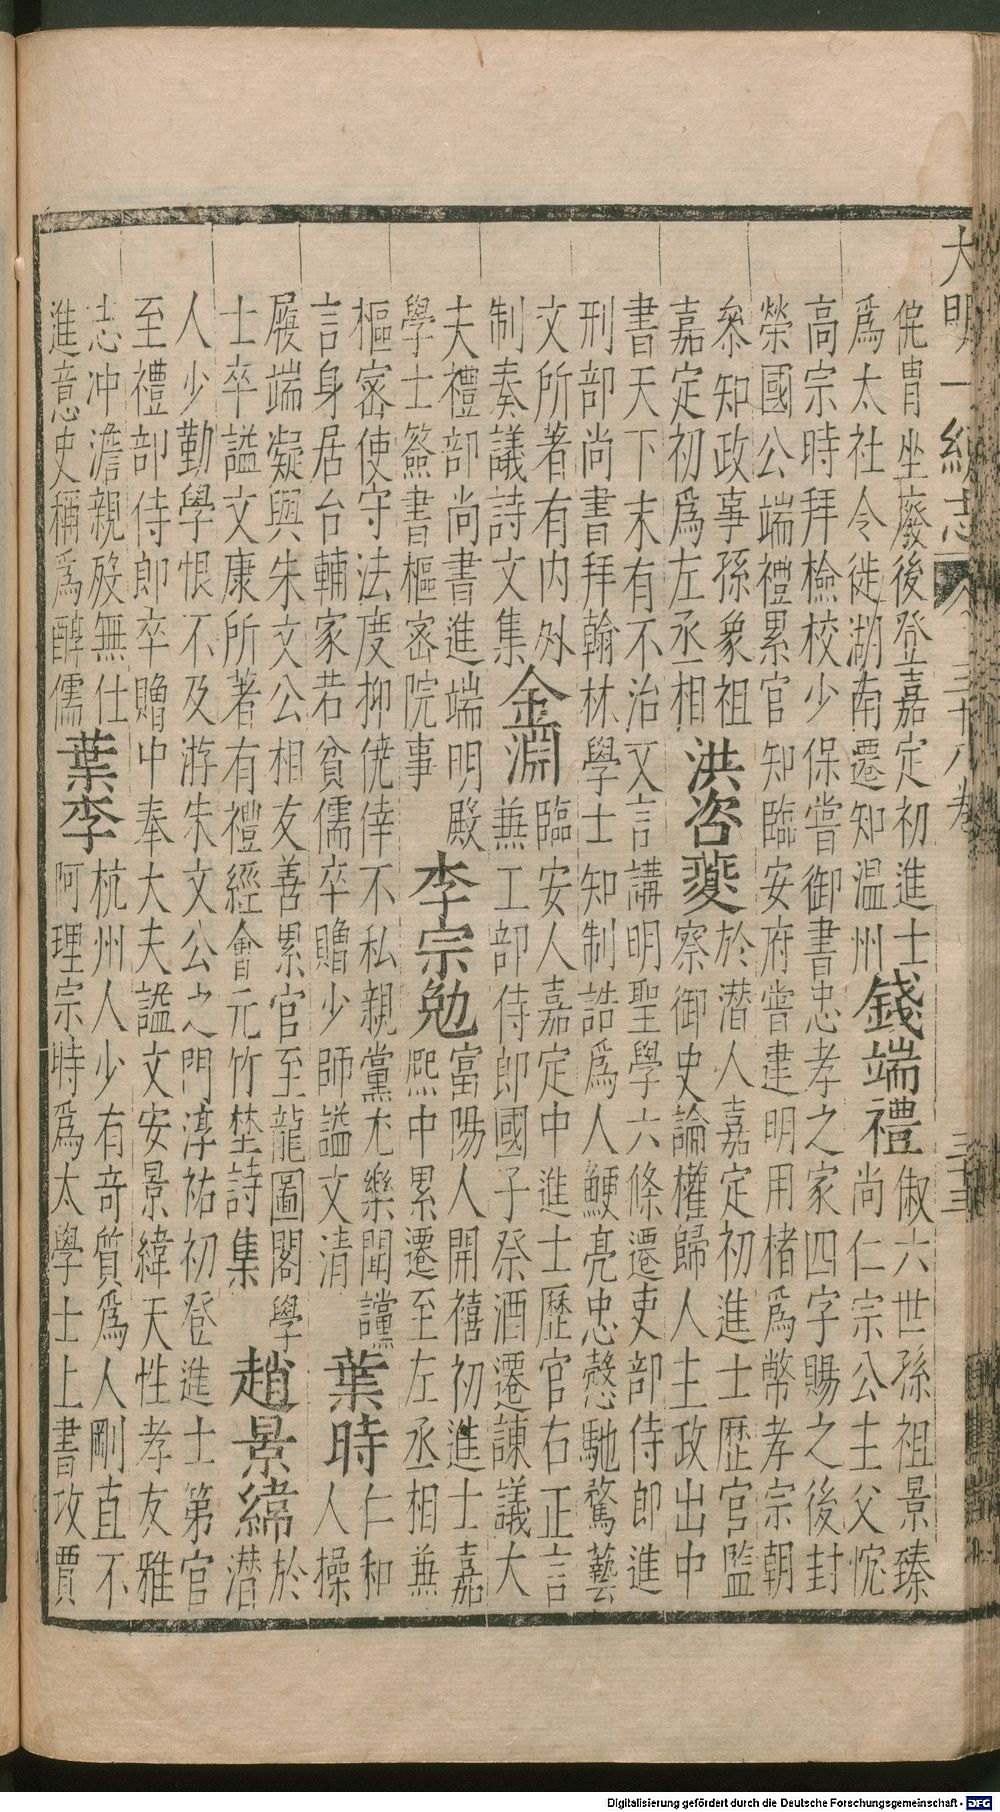 大明一統志 三十八卷 三十三
侂冑坐廢後登嘉定初進士
爲太社令徙湖南遷知温州
錢端禮
俶六世孫祖景臻
尚仁宗公主父忱
高宗時拜檢校少保嘗御書忠孝之家四字賜之後封
榮國公端禮累官知臨安府嘗建明用楮爲幣孝宗朝
叅知政事孫象祖
嘉定初爲左丞相
洪咨夔
於潜人嘉定初進士歷官監
察御史論權歸人主政出中
書天下末有不治又言講明聖學六條遷吏部侍郎進
刑部尚書拜翰林學士知制誥爲人鯁亮忠慤馳騖藝
文所著有内外
制奏議詩文集
金淵
臨安人嘉定中進士歷官右正言
兼工部侍郎國子祭酒遷諫議大
夫禮部尚書進端明殿
學士簽書樞密院事
李宗勉
富陽人開禧初進士嘉
熙中累遷至左丞相兼
樞密使守法度抑僥倖不私親黨尤樂聞讜
言身居台輔家若貧儒卒贈少師謚文清
葉時
仁和
人操
履端凝與朱文公相友善累官至龍圖閣學
士卒謚文康所著有禮經會元竹埜詩集
趙景緯
於
潜
人少勤學恨不及游朱文公之門淳祐初登進士第官
至禮部侍郎卒贈中奉大夫謚文安景緯天性孝友雅
志冲澹親殁無仕
進意史稱爲醇儒
葉李
杭州人少有奇質爲人剛直不
阿理宗時爲太學士上書攻賈
Digitalisierung gefördert durch die Deutsche Forschungsgemeinschaft - DFG